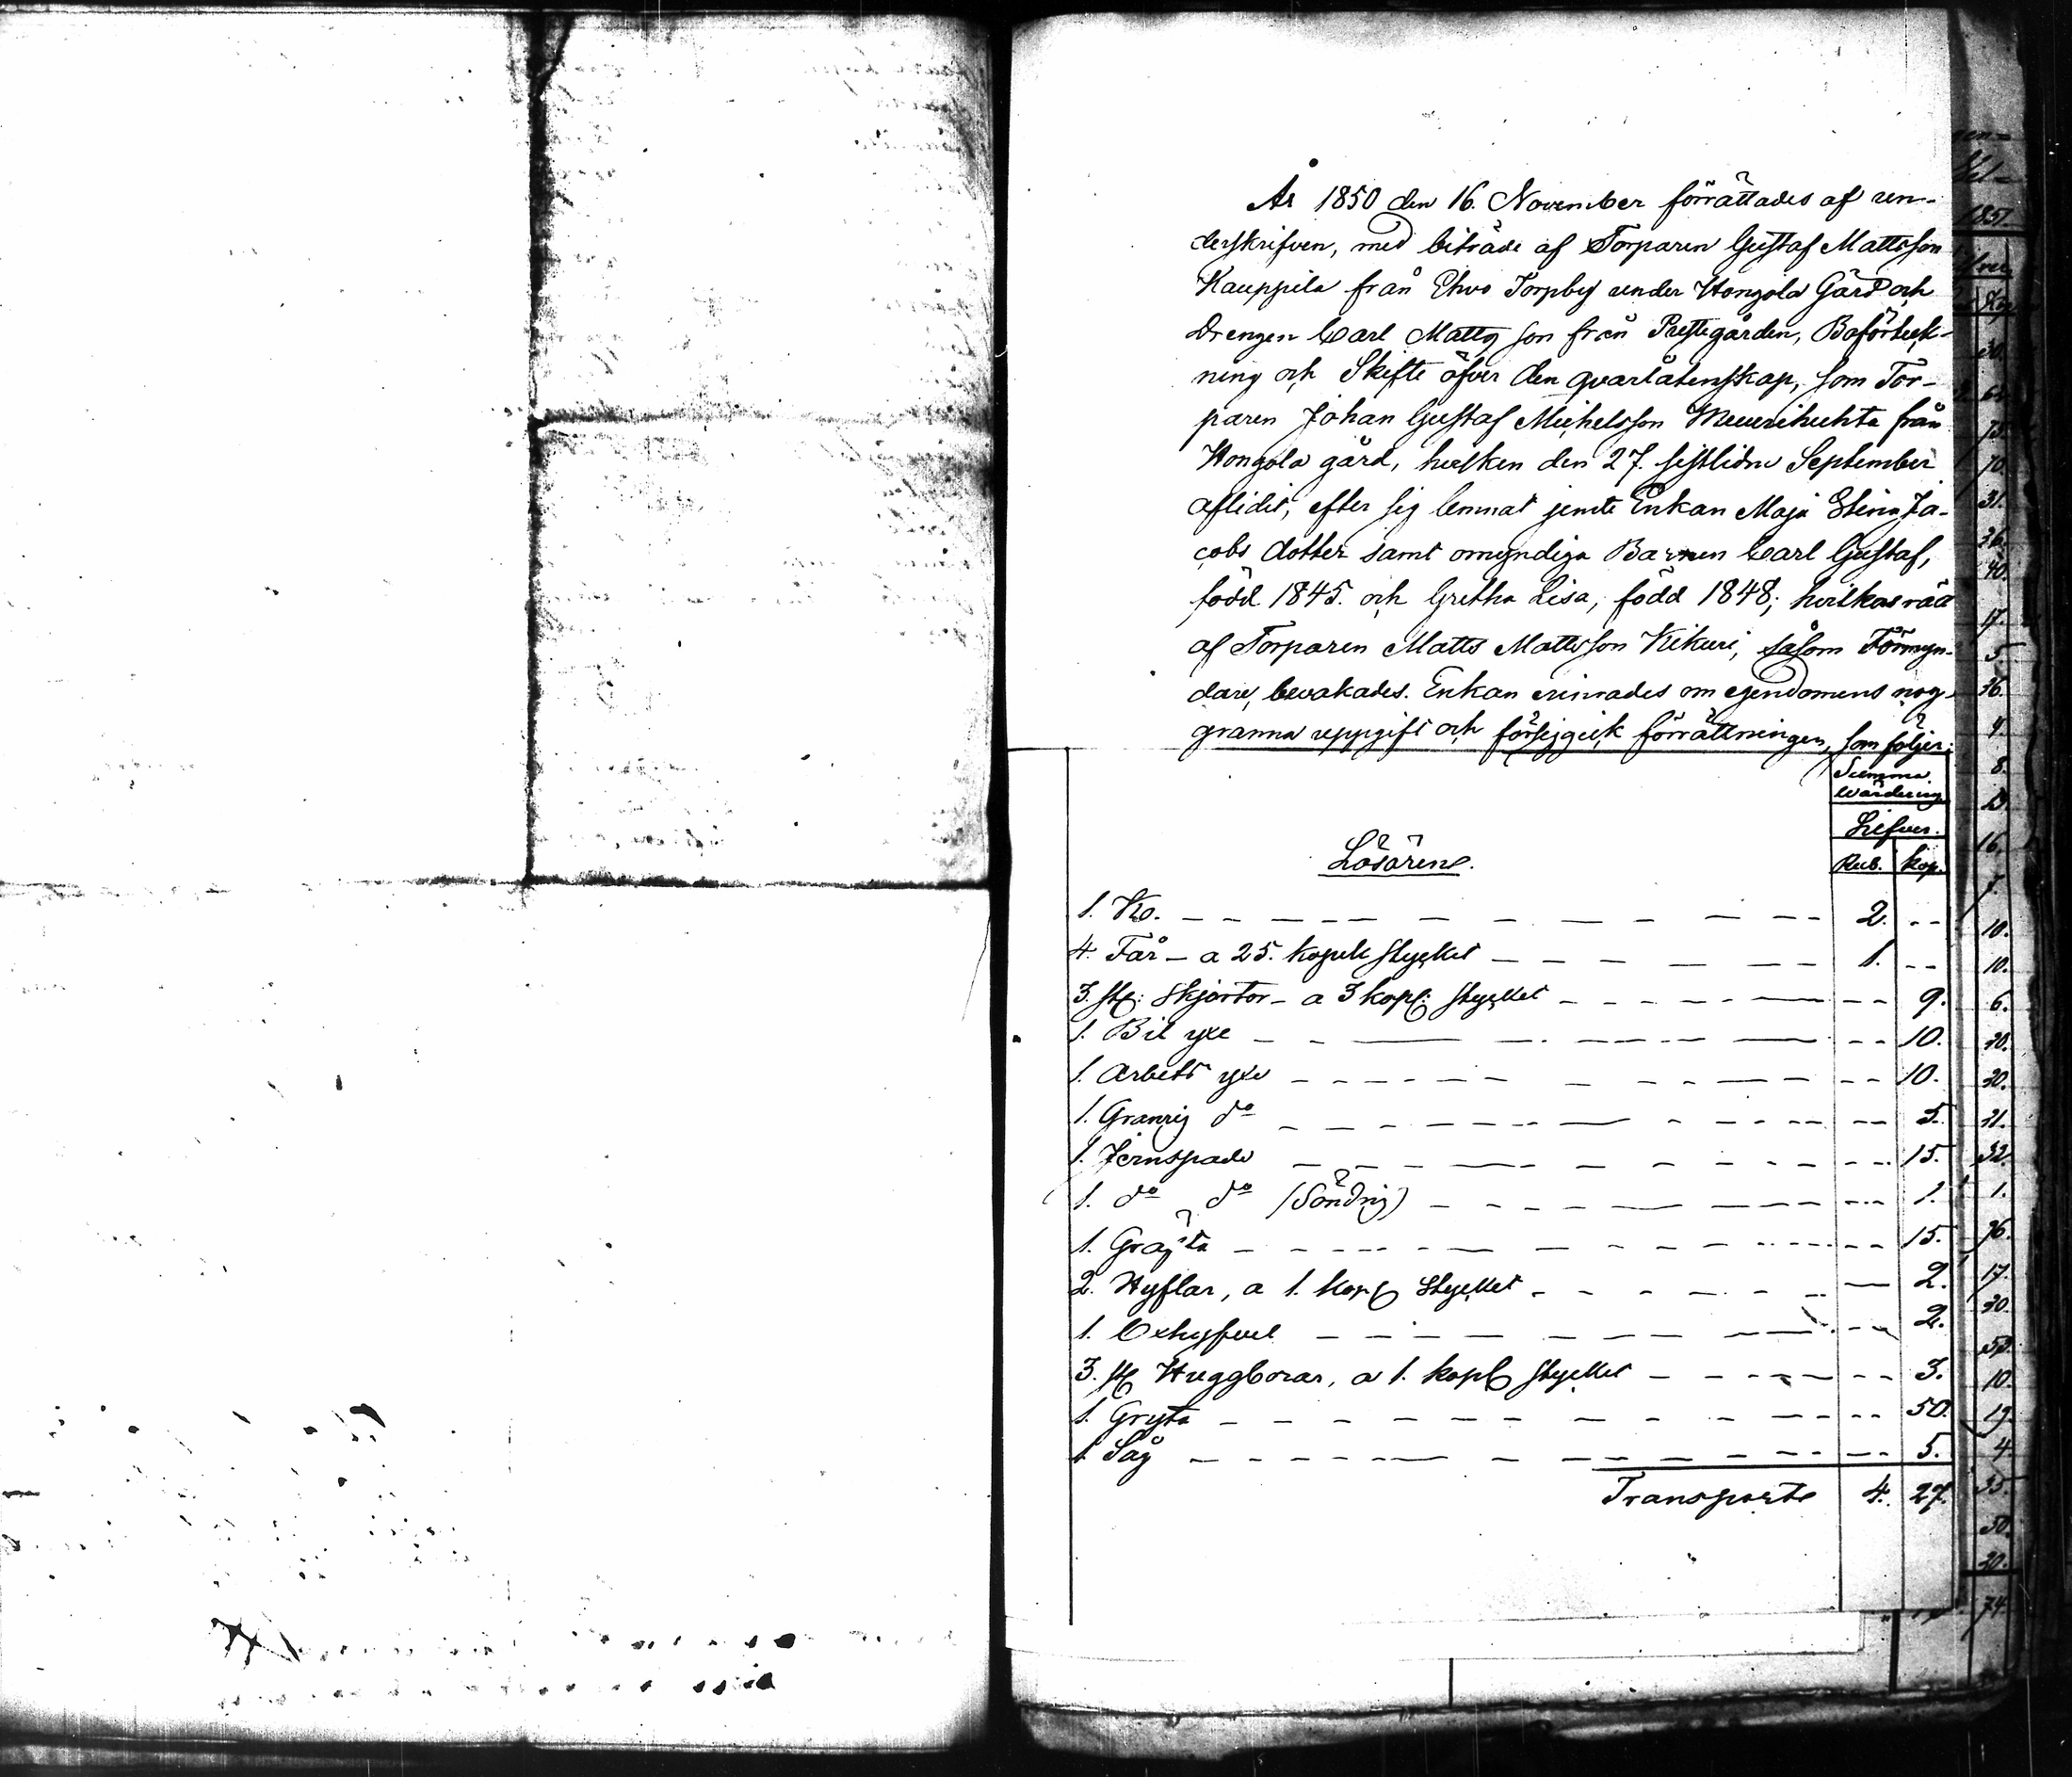 År 1850 den 16. November förrättades af un-
derskrifven, med biträde af Torparen Gustaf Mattsson
Kauppila från Ehvo Torpby under Hongola Gård och
Drengen Carl Mattsson från Prestegården, Boförteck-
ning och Skifte öfver den qvarlåtenskap, som Tor-
paren Johan Gustaf Michelsson Muurihuhta från
Hongola gård, hvilken den 27. sistlidne September
aflidit, efter sig lemnat jemte Enkan Maja Stina Ja-
cobs dotter samt omyndiga Barnen Carl Gustaf,
född 1845. och Gretha Lisa, född 1848; hvilkas rätt
af Torparen Matts Mattsson Kikuri, såsom Förmyn-
dare, bevakades. Enkan erinrades om egendomens nog-
granna uppgift och försiggick förrättningen, som följer:
Summa
Wärdering
Silfver.
Lösören.
Rub. kop.
1. Ko. 2. --
4. Får - a 25. kopek stycket 1. --
3. st: Skjortor - a 3 kop: stycket -- 9.
1. Bil yxe -- 10.
1. Arbets yxe -- 10.
1. Granrig do -- 5.
1. Jernspade -- 15.
1. do do (Söndrig) -- 1.
1. Gräfta -- 15.
2. Hyflar, a 1. kop stycket - 2.
1. Oxhyfvel -- 2.
3. st Huggborar, a 1. kop stycket -- 3.
1. Gryta -- 50.
1. Såg -- 5.
Transporte 4. 27.